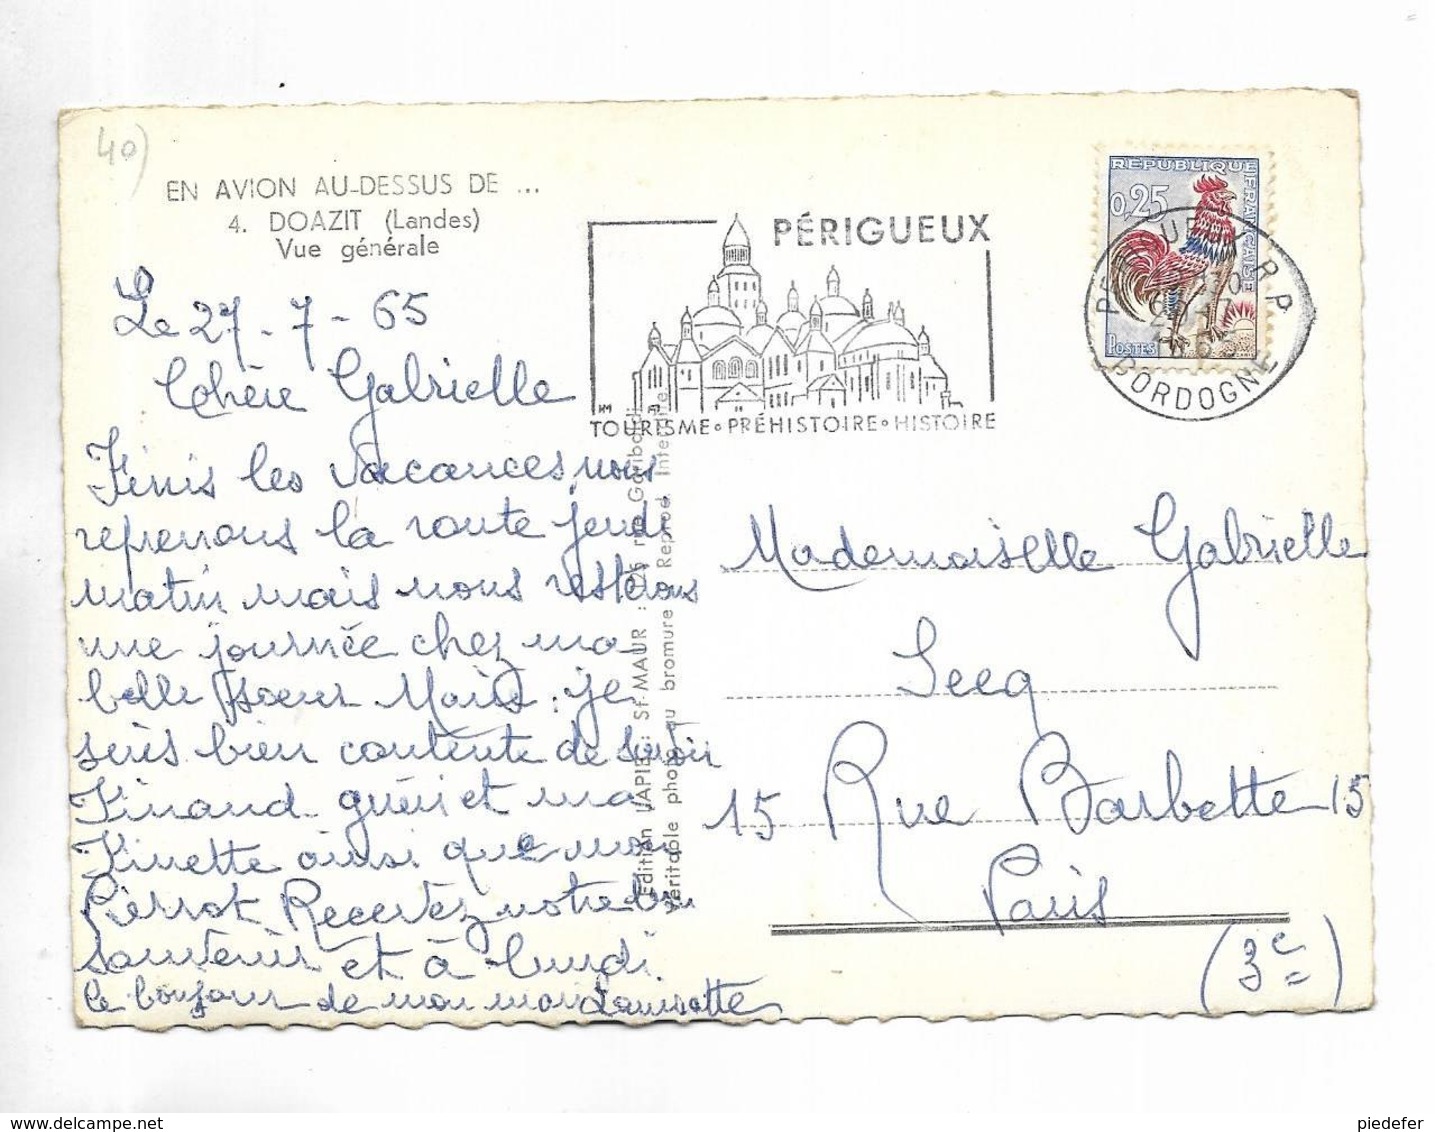 40)
EN AVION AU-DESSUS DE ...
4. DOAZIT (Landes)
Vue générale
Le 27-7-65
Chère Gabrielle
Finis les vacances, nous
reprenons la route jeudi
matin mais nous resterons
une journée chez ma
belle soeur : je
serès bien contente de
guéri et ma
ainsi que mon
Pierrot Recevez notre bon
souvenir et à lundi
le bonjour de mon Louisette
PÉRIGUEUX
TOURISME • PRÉHISTOIRE • HISTOIRE
REPUBLIQUE FRANÇAISE
0,25
POSTES
R.P.
DORDOGNE
Edition LAPIE : St-MAUR : rue Garibaldi
Véritable photo au bromure Reprod. Interdite
Mademoiselle Gabrielle
Secq
15 Rue Barbette 15
Paris
(3e)
piedefer